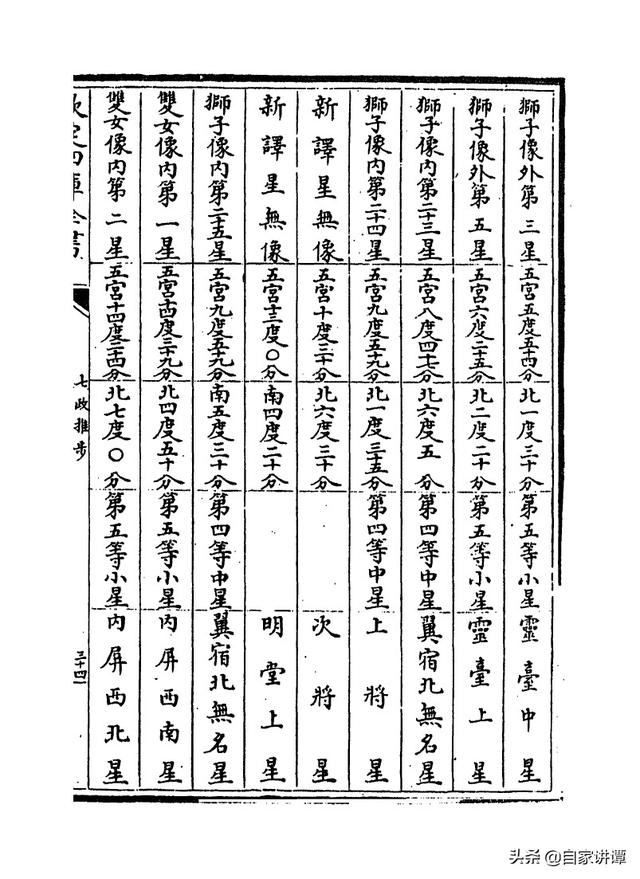 獅子像外第三星五宮五度五十四分北一度三十分第五等小星靈臺中星
獅子像外第五星五宮六度二十五分北二度二十分第五等小星靈臺上星
獅子像內第二十三星五宮八度四十七分北六度五分第四等中星翼宿北無名星
獅子像內第二十四星五宮九度五十九分北一度三十五分第四等中星上將
新譯星無像五宮十度三十分北六度三十分次將星
新譯星無像五宮十三度〇分南四度二十分明堂上星
獅子像內第二十五星五宮九度五十九分南五度三十分第四等中星翼宿北無名星
雙女像內第一星五宮十四度三十九分北四度五十分第五等小星內屏西南星
雙女像內第二星五宮十四度二十四分北七度〇分第五等小星內屏西北星
欽定四庫全書
七政推步
三十四
头条 @自家讲谭